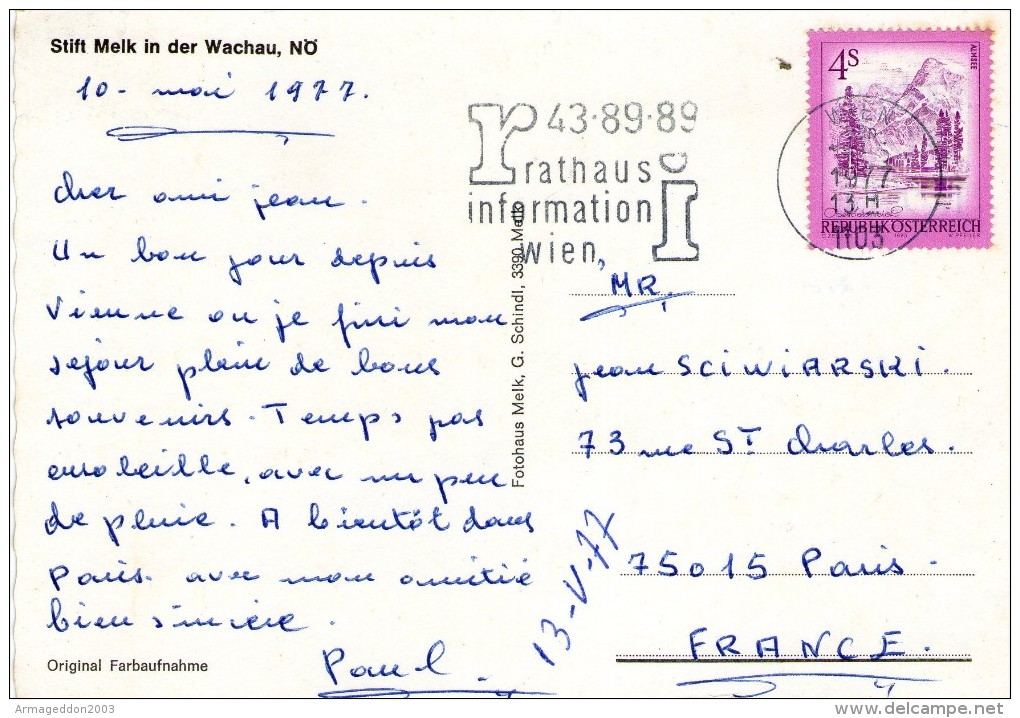 Stift Melk in der Wachau, NÖ
10 - mai 1977.
cher ami jean.
Un bon jour depuis
Vienne ou je fini mon
sejour plein de bons
souvenirs. Temps pas
ensoleille, avec un peu
de pluie. A bientôt dans
Paris. avec mon amitié
bien sincère.
Paul.
Original Farbaufnahme
Fotohaus Melk, G. Schindl, 3390 Melk
43·89·89
rathaus
information
wien
4S
ALMSEE
REPUBLIK ÖSTERREICH
WIEN
1977
13 H
1103
MR.
jean SCIWIARSKI.
73 rue ST charles.
75015 Paris.
FRANCE.
13-V-77
Armageddon2003
delcampe.net